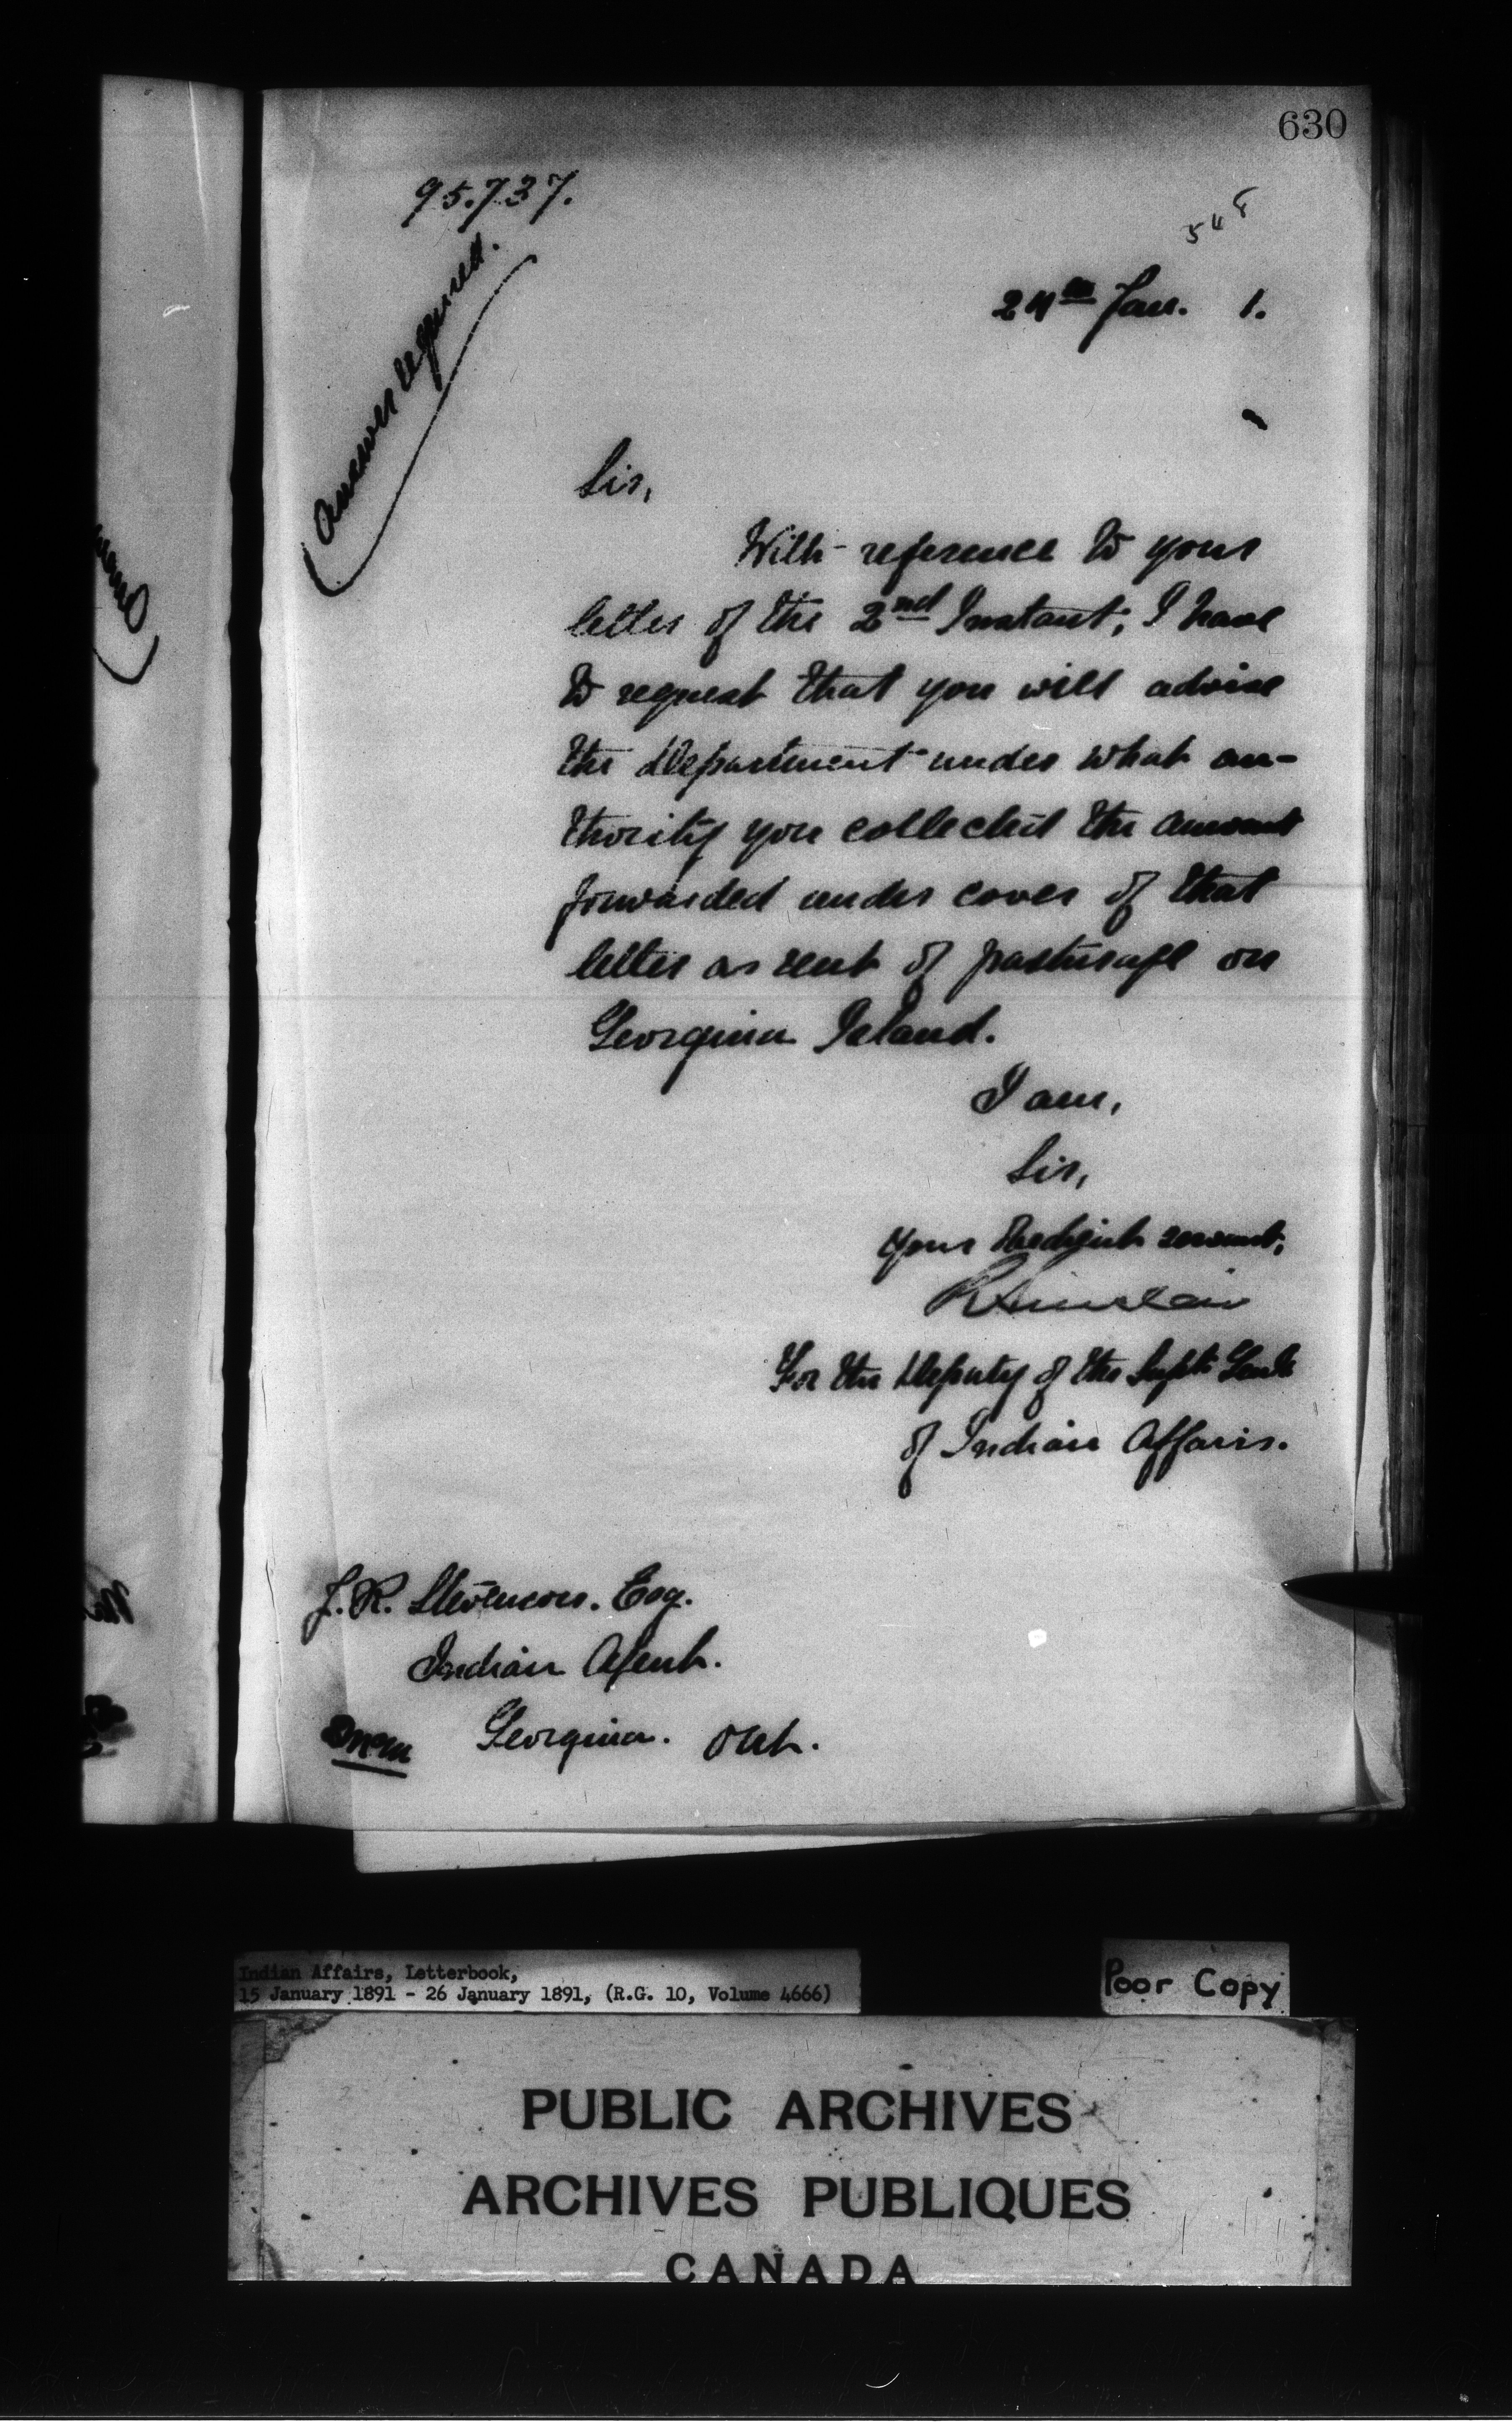 630
95.737.
548
24th Jan. 1.
Answer required.
Sir,
With reference to your
letter of the 2nd Instant, I have
to request that you will advise
the Department under what au-
thority you collected the amount
forwarded under cover of that
letter as rent of pasturage on
Georgina Island.
I am,
Sir,
Your obedient servant,
R Sinclair
For the Deputy of the Supt. Genl.
of Indian Affairs.
J. R. Stevenson. Esq.
Indian Agent.
Georgina. Ont.
Indian Affairs, Letterbook,
15 January 1891 - 26 January 1891, (R.G. 10, Volume 4666)
Poor Copy
PUBLIC ARCHIVES
ARCHIVES PUBLIQUES
CANADA